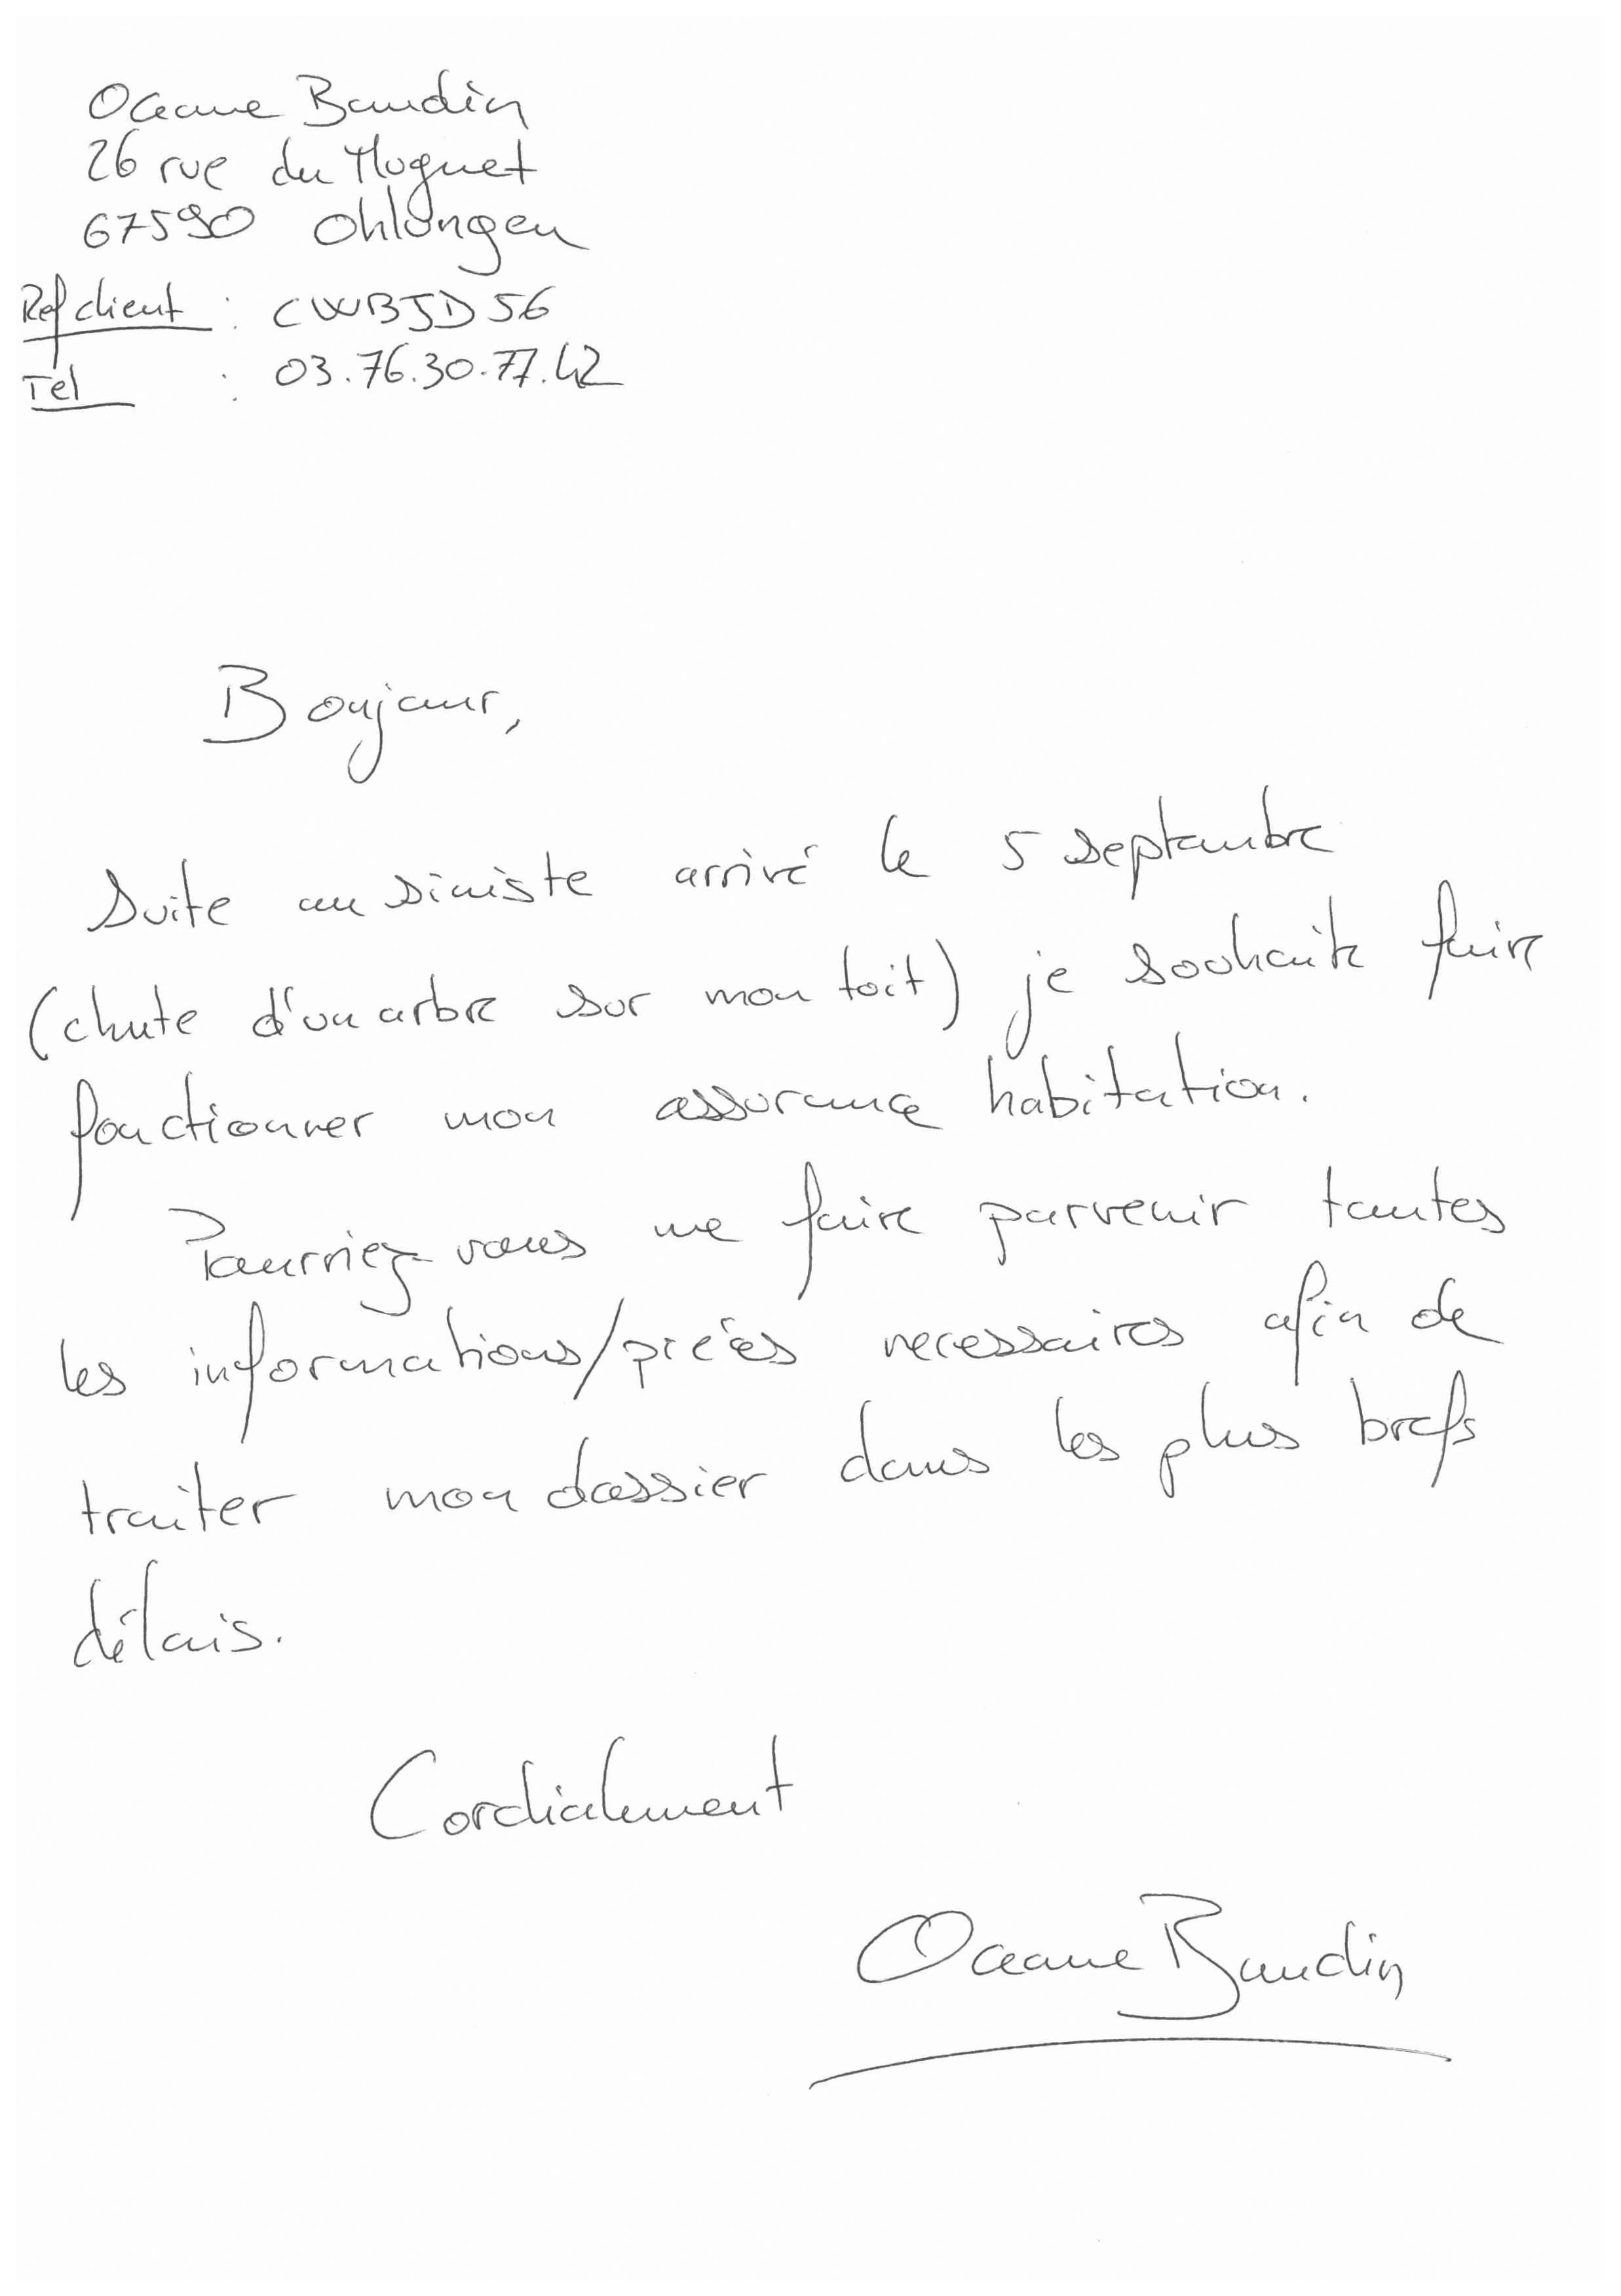 Oceane Baudin
26 rue du Muguet
67590 Ohlungen
Ref client : CWBJD56
Tel : 03.76.30.77.42
Bonjour,
Suite au siniste arrivé le 5 septembre
(chute d'un arbre sur mon toit) je souhaite faire
fonctionner mon assurance habitation.
Pourriez-vous me faire parvenir toutes
les informations/pièces necessaires afin de
traiter mon dossier dans les plus brefs
délais.
Cordialement
Oceane Baudin